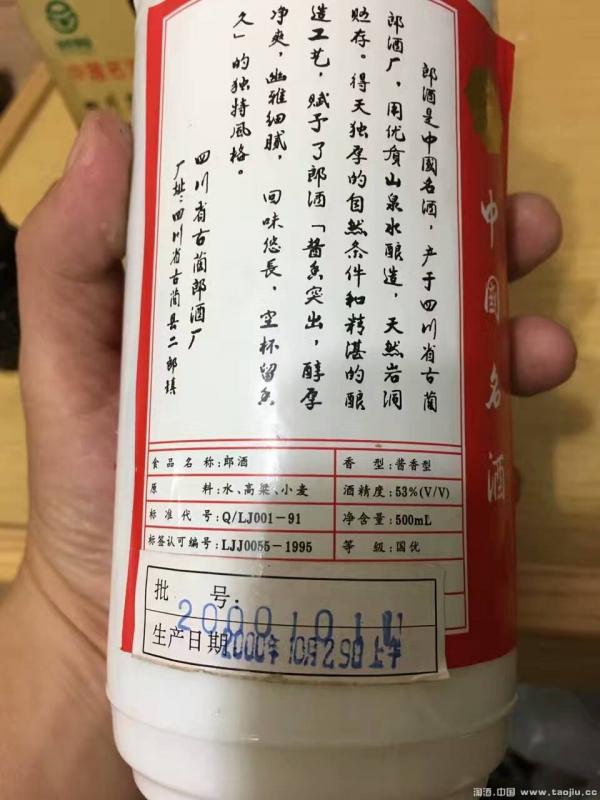 郎酒是中國名酒，产于四川省古蔺
郎酒厂，用优质山泉水酿造，天然岩洞
贮存。得天独厚的自然条件和精湛的酿
造工艺，赋予了郎酒「酱香突出，醇厚
净爽，幽雅细腻，回味悠長，空杯留香
久」的独特風格。
四川省古蔺郎酒厂
厂址：四川省古蔺县二郎镇
中國名酒
食品名称:郎酒
香型:酱香型
原料:水、高粱、小麦
酒精度:53%(V/V)
标准代号:Q/LJ001-91
净含量:500mL
标签认可编号:LJJ0055-1995
等级:国优
批号:
生产日期 2000年10月29日上午
淘酒.中国 www.taojiu.cc